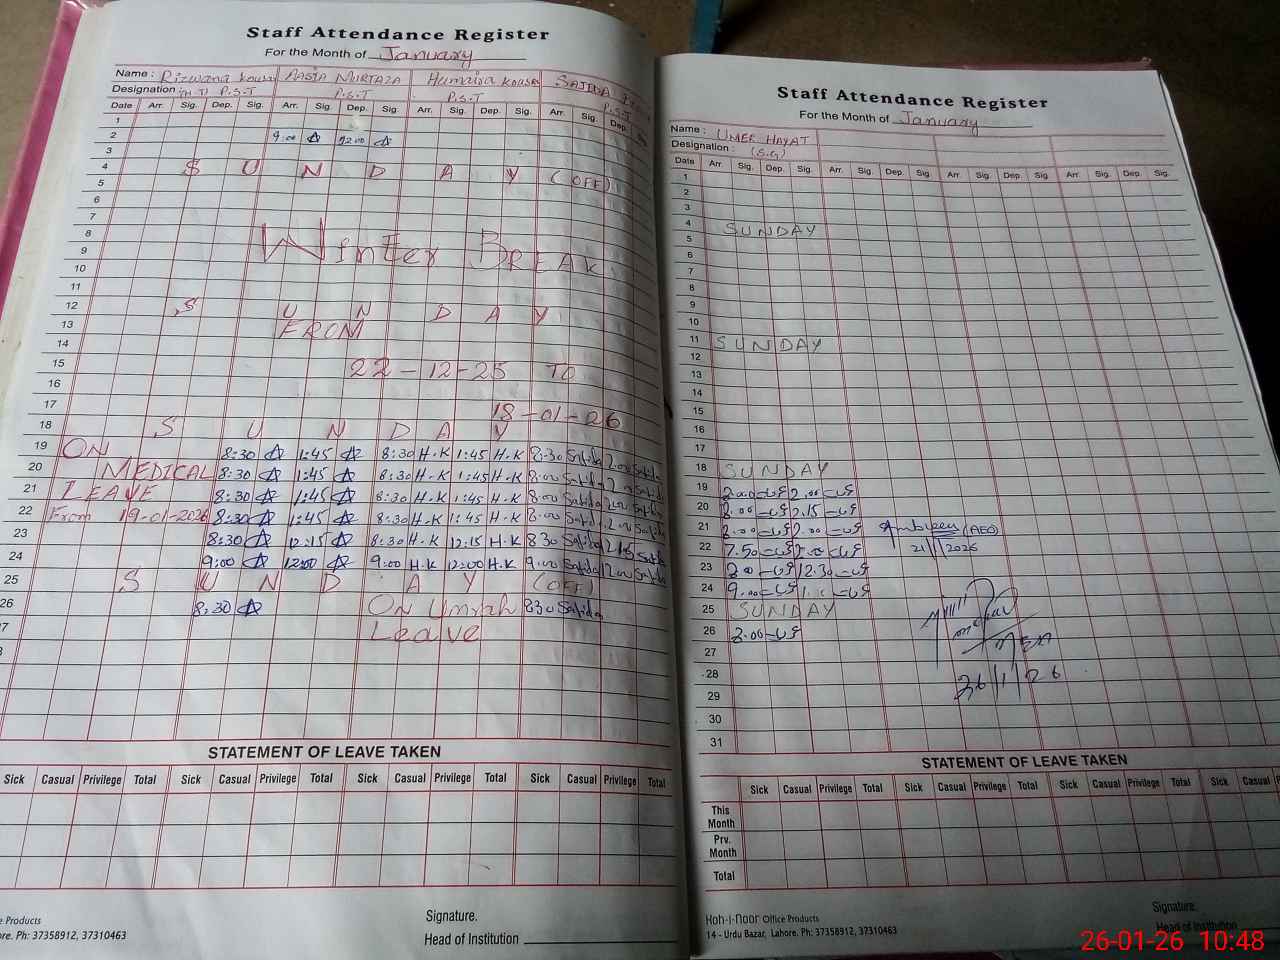 Staff Attendance Register
For the Month of January
Name : Rizwana Kousar AASIA MURTAZA Humaira Kousar SAJIDA
Designation : (H.T) P.S.T P.S.T P.S.T P.S.T
Date Arr. Sig. Dep. Sig. Arr. Sig. Dep. Sig. Arr. Sig. Dep. Sig. Arr. Sig. Dep.
1
2 9:00 12:00
3
4 SUNDAY (OFF)
5
6
7
8 Winter BREAK
9
10
11
12 SUNDAY
13 FROM
14
15 22-12-25 TO
16
17 18-01-26
18 SUNDAY
19 ON 8:30 1:45 8:30 H.K 1:45 H.K 8:30 Sajida 2:00 Sajida
20 MEDICAL 8:30 1:45 8:30 H.K 1:45 H.K 8:00 Sajida 2:00 Sajida
21 LEAVE 8:30 1:45 8:30 H.K 1:45 H.K 8:00 Sajida 2:00 Sajida
22 From 19-01-2026 8:30 1:45 8:30 H.K 1:45 H.K 8:00 Sajida 2:00 Sajida
23 8:30 12:15 8:30 H.K 12:15 H.K 830 Sajida
24 9:00 12:00 9:00 H.K 12:00 H.K 9:00 Sajida 12:00 Sajida
25 SUNDAY (OFF)
26 8:30 ON Umrah 830 Sajida
7 Leave
STATEMENT OF LEAVE TAKEN
Sick Casual Privilege Total Sick Casual Privilege Total Sick Casual Privilege Total Sick Casual Privilege Total
Signature.
Head of Institution
e Products
ore. Ph: 37358912, 37310463
Staff Attendance Register
For the Month of January
Name : UMER HAYAT
Designation : (S.G)
Date Arr. Sig. Dep. Sig. Arr. Sig. Dep. Sig. Arr. Sig. Dep. Sig. Arr. Sig. Dep. Sig.
1
2
3
4 SUNDAY
5
6
7
8
9
10
11 SUNDAY
12
13
14
15
16
17
18 SUNDAY
19 2.00
20 8.00 2.15
21 8.00 2.00 Ambreen (AEO)
22 7.50 2.00 21/1/2026
23 12.30
24 9.00
25 SUNDAY
26 8.00
27
28 26/1/26
29
30
31
STATEMENT OF LEAVE TAKEN
Sick Casual Privilege Total Sick Casual Privilege Total Sick Casual Privilege Total Sick Casual
This Month
Prv. Month
Total
Koh-i-noor Office Products
14 - Urdu Bazar, Lahore. Ph: 37358912, 37310463
Signature.
Head of Institution
26-01-26 10:48